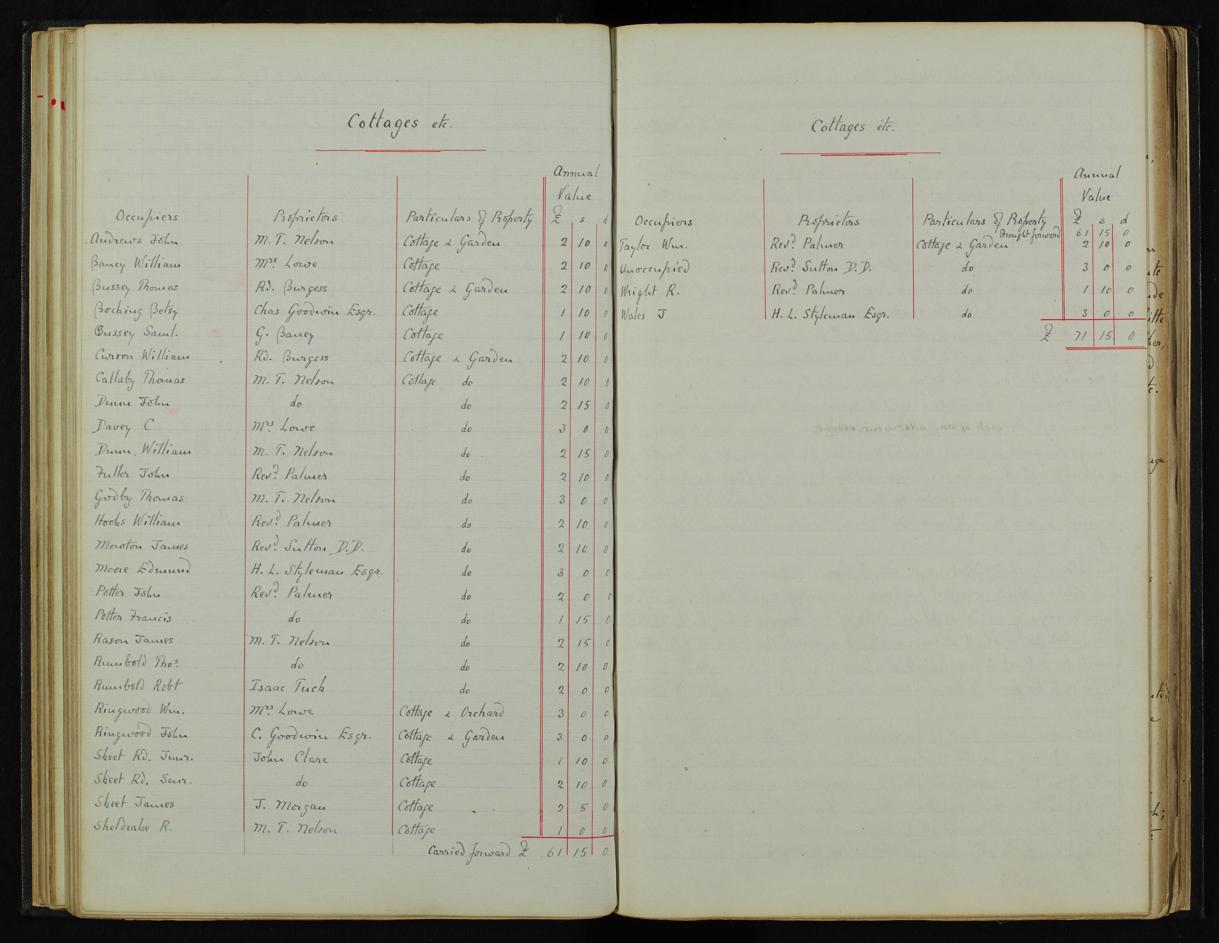 Cottages etc.
Annual
Value
Occupiers Proprietors Particulars of Property £ s d
Andrews John M. T. Nelson Cottage & Garden 2 10 0
Baney William Mrs Lowe Cottage 2 10 0
Bussey Thomas Rd. Burgess Cottage & Garden 2 10 0
Bocking Betsy Chas Goodwin Esqr. Cottage 1 10 0
Bussey Saml. G. Baney Cottage 1 10 0
Curson William Rd. Burgess Cottage & Garden 2 10 0
Callaby Thomas M. T. Nelson Cottage do 2 10 0
Dunn John do do 2 15 0
Davey C Mrs Lowe do 3 0 0
Dunn William M. T. Nelson do 2 15 0
Fuller John Revd Palmer do 2 10 0
Godby Thomas M. T. Nelson do 3 0 0
Hooks William Revd Palmer do 2 10 0
Mowton James Revd Sutton D.D. do 2 10 0
Moore Edmund H. L. Styleman Esqr. do 3 0 0
Potter John Revd Palmer do 2 0 0
Potter Francis do do 1 15 0
Rason James M. T. Nelson do 2 15 0
Rumbold Thos do do 2 10 0
Rumbold Robt Isaac Tuck do 2 0 0
Ringwood Wm. Mrs Lowe Cottage & Orchard 3 0 0
Ringwood John C. Goodwin Esqr. Cottage & Garden 3 0 0
Skeet Rd. Junr. John Clare Cottage 1 10 0
Skeet Rd. Senr. do Cottage 2 10 0
Skeet James J. Morgan Cottage 2 5 0
Sheldrake R. M. T. Nelson Cottage 1 0 0
Carried forward £ 61 15 0
Cottages etc.
Annual
Value
Occupiers Proprietors Particulars of Property £ s d
Brought forward 61 15 0
Taylor Wm. Revd Palmer Cottage & Garden 2 10 0
Unoccupied Revd Sutton D.D. do 3 0 0
Wright R. Revd Palmer do 1 10 0
Wales J H. L. Styleman Esqr. do 3 0 0
£ 71 15 0